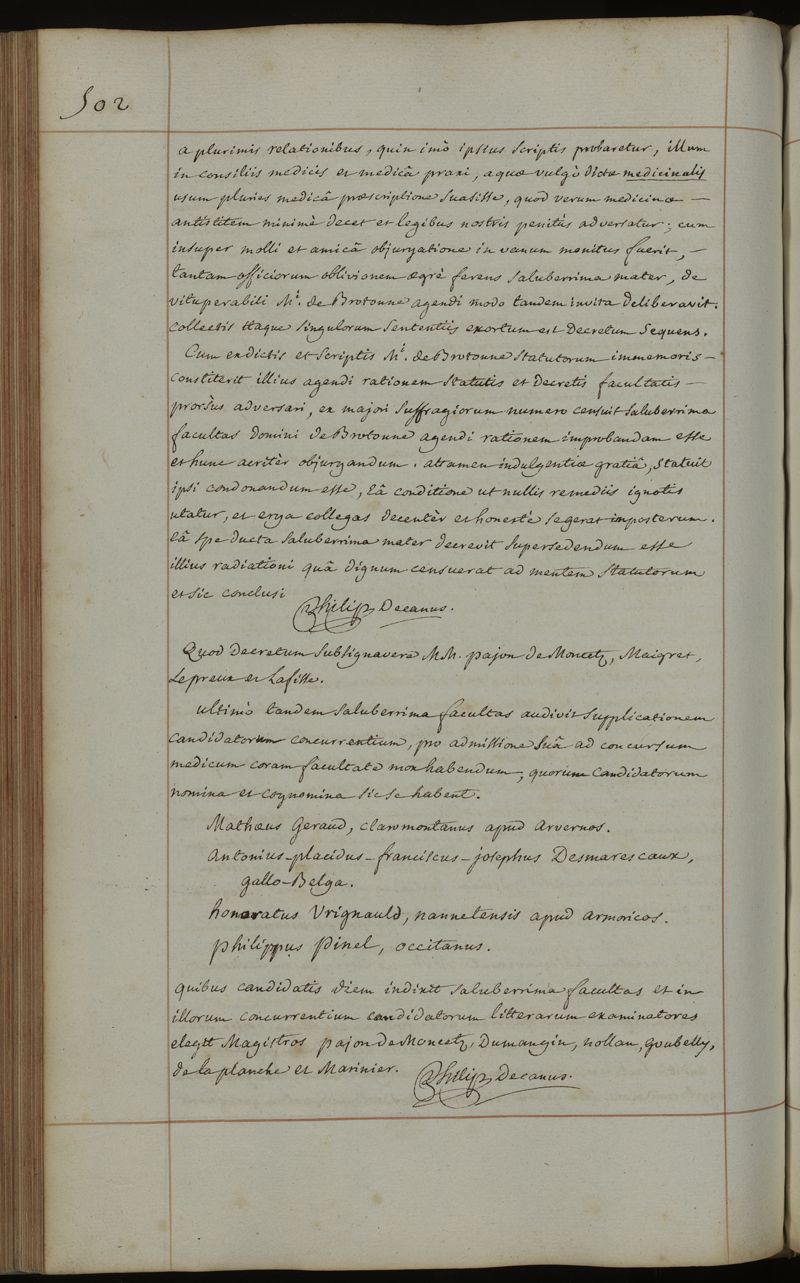 502
a plurimis relationibus, quin imò ipsius scriptis probaretur, illum
in consiliis medicis et medicâ praxi, aquæ vulgò dictæ medicinalis
usum pluries medicâ præscriptione suasisse, quod verum medicinæ —
antistitem minimè decet et legibus nostris penitùs adversatur; cum
insuper molli et amicâ objurgatione in vanum monitus fuerit, —
tantam officiorum oblivionem ægrè ferens saluberrima mater, de
vituperabili Mi. de Brotonne agendi modo tandem invita deliberavit.
Collectis itaque singulorum sententiis exortum est Decretum sequens.
Cum ex dictis et scriptis Mi. de Brotonne statutorum immemoris —
constiterit illius agendi rationem statutis et decretis facultatis —
prorsùs adversari, ex majori suffragiorum numero censuit saluberrima
facultas domini de Brotonne agendi rationem improbandam esse
et hunc acritèr objurgandum. attamen indulgentiæ gratiâ, statuit
ipsi condonandum esse, eâ conditione ut nullis remediis ignotis
utatur, et erga collegas decentèr et honestè se gerat imposterum.
eâ spe ducta saluberrima mater decrevit supersedendum esse
illius radiationi quâ dignum censuerat ad mentem statutorum
et sic conclusi
Philip Decanus.
Quod Decretum subsignavere MM. pajon de Moncetz, Maigret,
Lepreux et Lafisse.
ultimò tandem saluberrima facultas audivit supplicationem
candidatorum concurrentium, pro admissione suâ ad concursum
medicum coram facultate mox habendum; quorum candidatorum
nomina et cognomina sic se habent.
Mathæus Geraud, claromontanus apud Arvernos.
Antonius-placidus-franciscus-josephus Desmarescaux,
gallo-Belga.
honoratus Vrignauld, nannetensis apud armoricos.
philippus pinel, occitanus.
quibus candidatis diem indixit saluberrima facultas et in
illorum concurrentium candidatorum litterarum examinatores
elegit Magistros pajon de Moncetz, Dumangin, nollan, goubelly,
de laplanche et Marinier.
Philip Decanus.